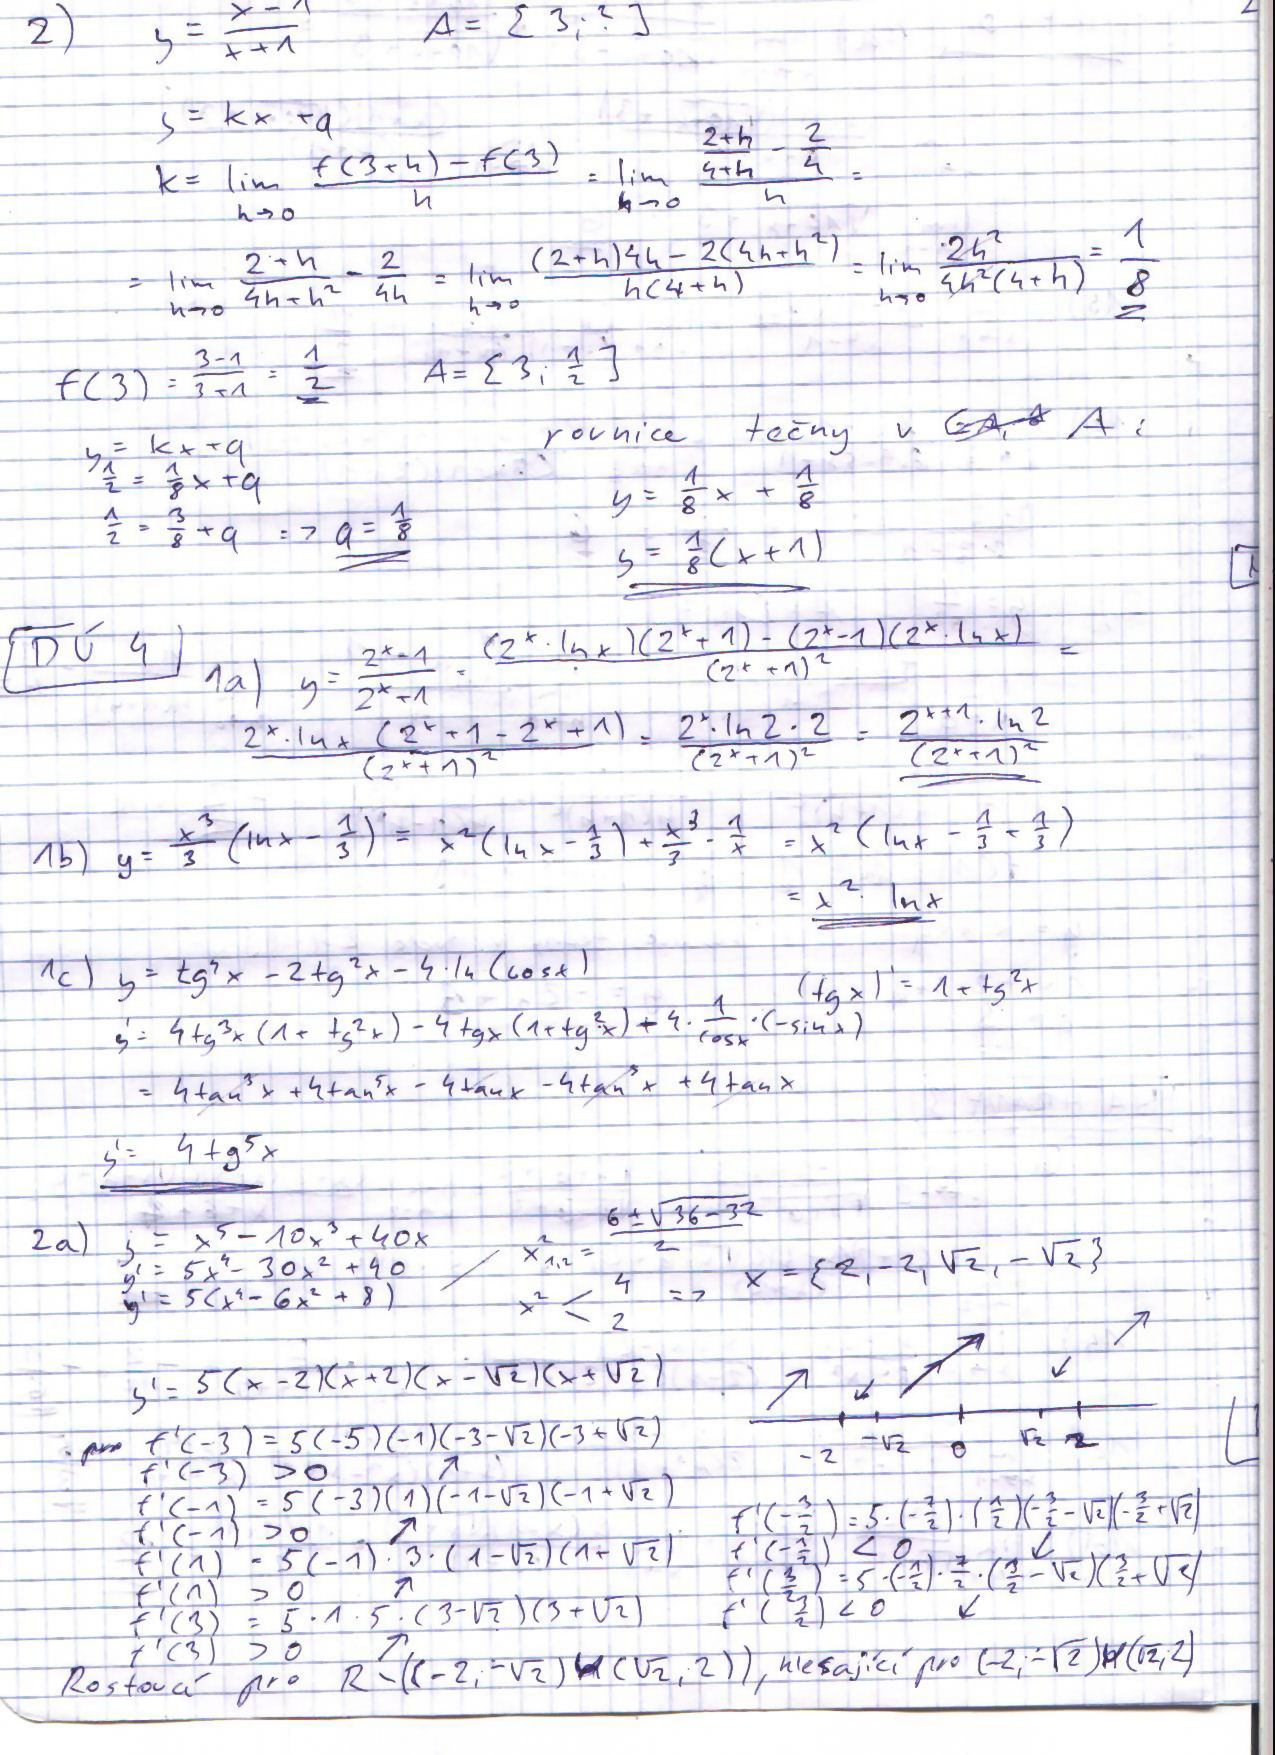 2) y = (x-1)/(x+1) A = [3; ?]
y = kx + q
k = lim h→0 (f(3+h) - f(3))/h = lim h→0 ((2+h)/(4+h) - 2/4)/h =
= lim h→0 (2+h)/(4h+h²) - 2/4h = lim h→0 ((2+h)4h - 2(4h+h²))/(h(4+h)) = lim h→0 2h²/(4h²(4+h)) = 1/8
f(3) = (3-1)/(3+1) = 1/2 A = [3; 1/2]
y = kx + q
1/2 = 1/8 x + q
1/2 = 3/8 + q => q = 1/8
rovnice tečny v A:
y = 1/8 x + 1/8
y = 1/8 (x+1)
DÚ 4
1a) y = (2ˣ-1)/(2ˣ+1) = ((2ˣ·ln x)(2ˣ+1) - (2ˣ-1)(2ˣ·ln x))/(2ˣ+1)² =
(2ˣ·ln x (2ˣ+1-2ˣ+1))/(2ˣ+1)² = (2ˣ·ln 2·2)/(2ˣ+1)² = (2ˣ⁺¹·ln 2)/(2ˣ+1)²
1b) y = x³/3 (ln x - 1/3) = x²(ln x - 1/3) + x³/3 · 1/x = x² (ln x - 1/3 + 1/3)
= x² · ln x
1c) y = tg⁴x - 2tg²x - 4·ln(cos x) (tg x)' = 1+tg²x
y' = 4tg³x(1+tg²x) - 4tgx(1+tg²x) + 4·1/cosx·(-sin x)
= 4tan³x + 4tan⁵x - 4tan x - 4tan³x + 4tan x
y' = 4tg⁵x
2a) y = x⁵ - 10x³ + 40x
y' = 5x⁴ - 30x² + 40
y' = 5(x⁴ - 6x² + 8)
x²₁,₂ = (6±√(36-32))/2
x² < 4 2 => x = {2, -2, √2, -√2}
y' = 5(x-2)(x+2)(x-√2)(x+√2)
-2 -√2 0 √2 2
pro f'(-3) = 5(-5)(-1)(-3-√2)(-3+√2)
f'(-3) > 0 ↗
f'(-1) = 5(-3)(1)(-1-√2)(-1+√2)
f'(-1) > 0 ↗
f'(1) = 5(-1)·3·(1-√2)(1+√2)
f'(1) > 0 ↗
f'(3) = 5·1·5·(3-√2)(3+√2)
f'(3) > 0 ↗
f'(-3/2) = 5·(-7/2)·(1/2)(-3/2-√2)(-3/2+√2)
f'(-1/2) < 0 ↙
f'(3/2) = 5·(-1/2)·7/2·(3/2-√2)(3/2+√2)
f'(3/2) < 0 ↙
Rostoucí pro R-((-2;-√2)∪(√2;2)), klesající pro (-2;-√2)∪(√2;2)